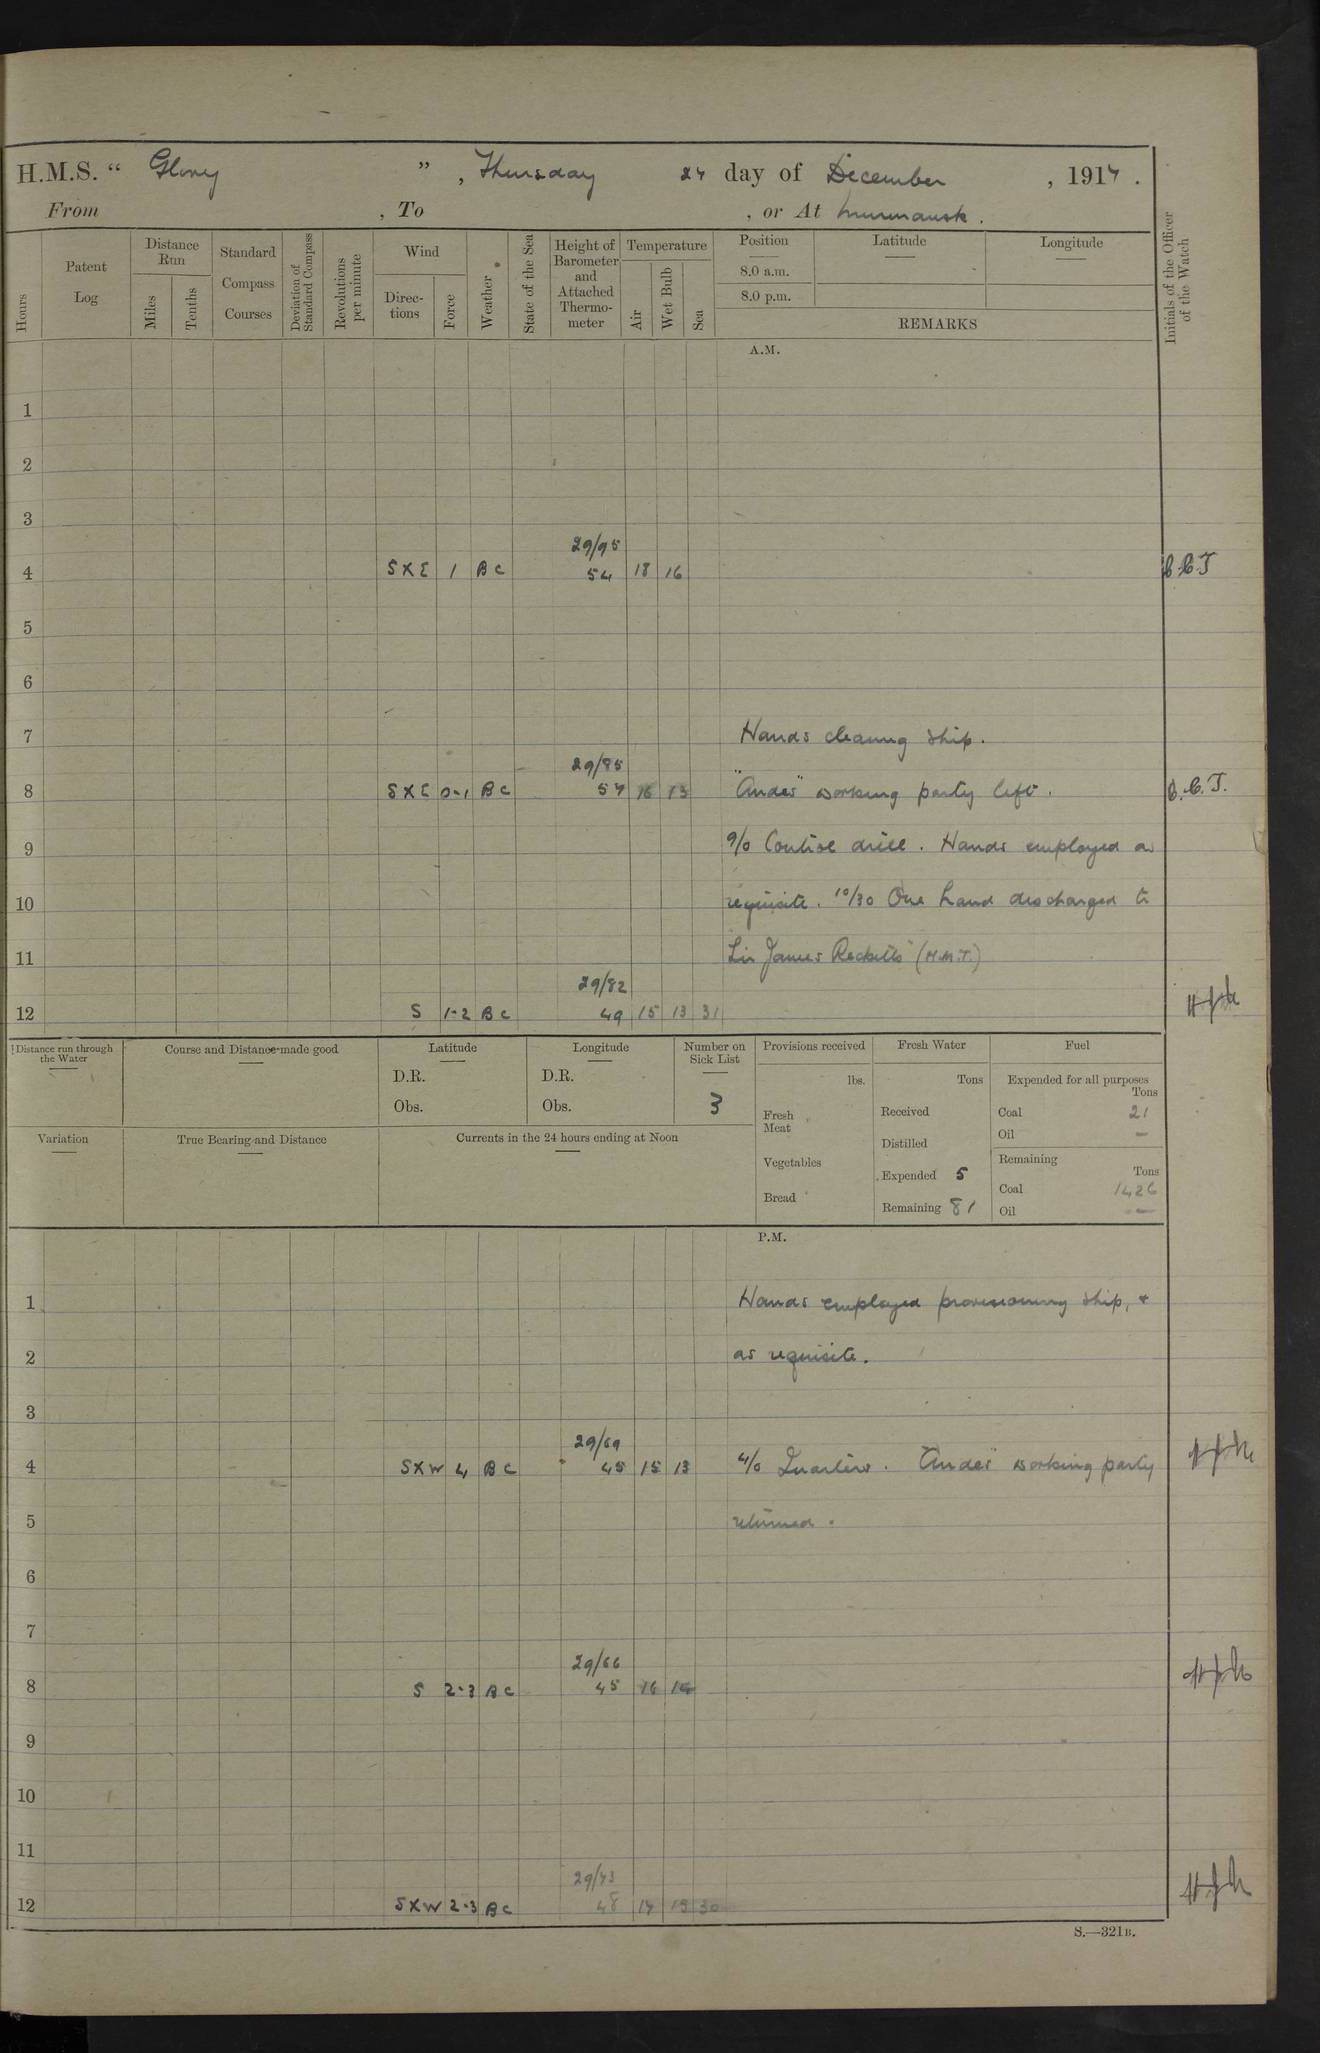 H.M.S. “ Glory ” , Thursday 27 day of December , 1917 .
From , To , or At Murmansk .
Hours
Patent Log
Distance Run
Miles
Tenths
Standard Compass Courses
Deviation of Standard Compass
Revolutions per minute
Wind
Directions
Force
Weather
State of the Sea
Height of Barometer and Attached Thermometer
Temperature
Air
Wet Bulb
Sea
Position
8.0 a.m.
8.0 p.m.
Latitude
Longitude
REMARKS
Initials of the Officer of the Watch
A.M.
1
2
3
29/95
4 SXE 1 BC 54 18 16
5
6
7 Hands cleaning ship.
29/85
8 SXE 0-1 BC 57 16 13 "Andes" working party left.
9 9/0 Control drill. Hands employed as
10 requisite. 10/30 One hand discharged to
11 Sir James Recketts" (H.M.T.)
29/82
12 S 1-2 BC 49 15 13 31
Distance run through the Water
Course and Distance made good
Latitude
D.R.
Obs.
Longitude
D.R.
Obs.
Number on Sick List
3
Provisions received
lbs.
Fresh Meat
Vegetables
Bread
Fresh Water
Tons
Received
Distilled
Expended 5
Remaining 81
Fuel
Expended for all purposes
Tons
Coal 21
Oil —
Remaining
Tons
Coal 1426
Oil —
Variation
True Bearing and Distance
Currents in the 24 hours ending at Noon
P.M.
1 Hands employed provisioning ship, &
2 as requisite.
3
29/69
4 SXW 4 BC 45 15 13 4/0 Quarters. "Andes" working party
5 returned.
6
7
29/66
8 S 2-3 BC 45 16 14
9
10
11
29/73
12 SXW 2-3 BC 48 17 15 30
S.—321B.